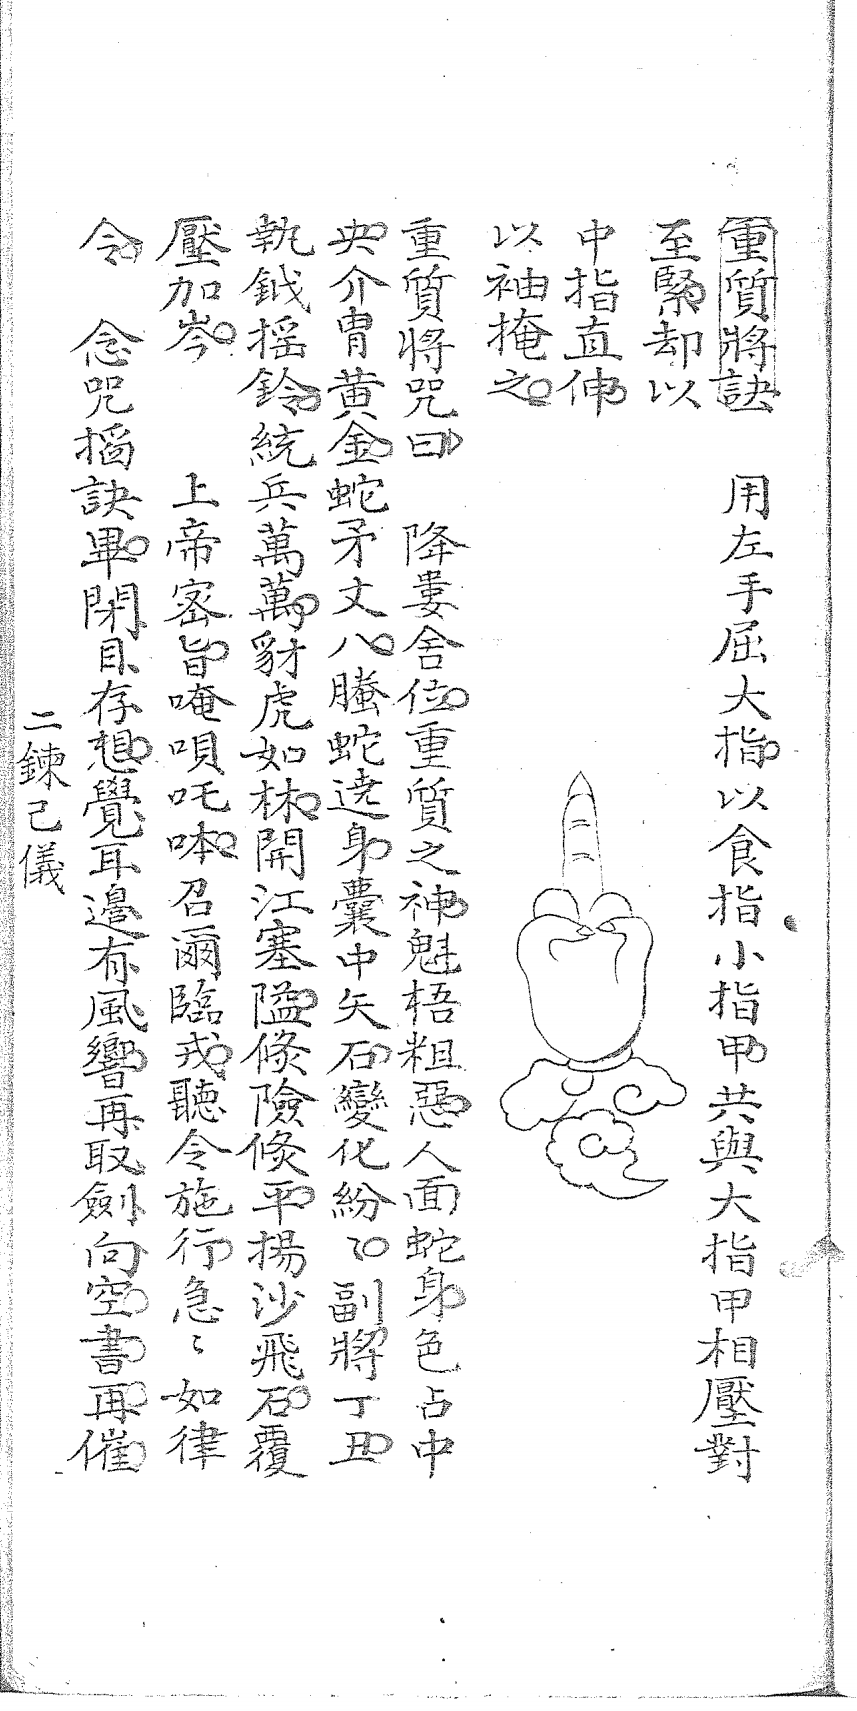 重質將訣　用左手屈大指以食指小指甲共與大指甲相壓對
至緊却以
中指直伸
以袖掩之
重質將咒曰　降婁舍位重質之神魁梧粗惡人面蛇身色占中
央介冑黄金蛇矛丈八螣蛇遶身囊中矢石變化紛〻副將丁丑
執鉞摇鈴統兵萬萬豺虎如林開江塞隘倐險倐平揚沙飛石覆
壓加岑　上帝密旨唵唄吒呠召爾臨戎聽令施行急〻如律
令　念咒搯訣畢閉目存想覺耳邉有風響再取劍向空書再催
二鍊己儀